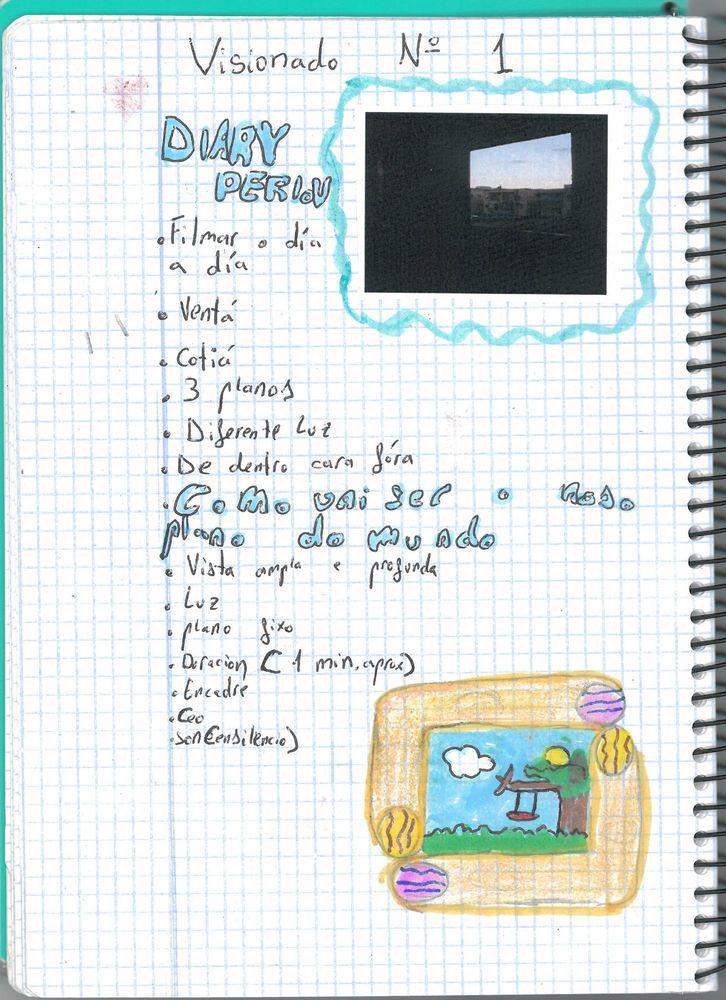 Visionado Nº 1
DIARY
PERLOV
• Filmar o día
a día
• Ventá
• Cotiá
• 3 planos
• Diferente Luz
• De dentro cara fóra
• Como vai ser o noso
plano do mundo
• Vista ampla e profunda
• Luz
• plano fixo
• Duracion ( 1 min. aprox)
• Encadre
• Ceo
• son (ensilencio)